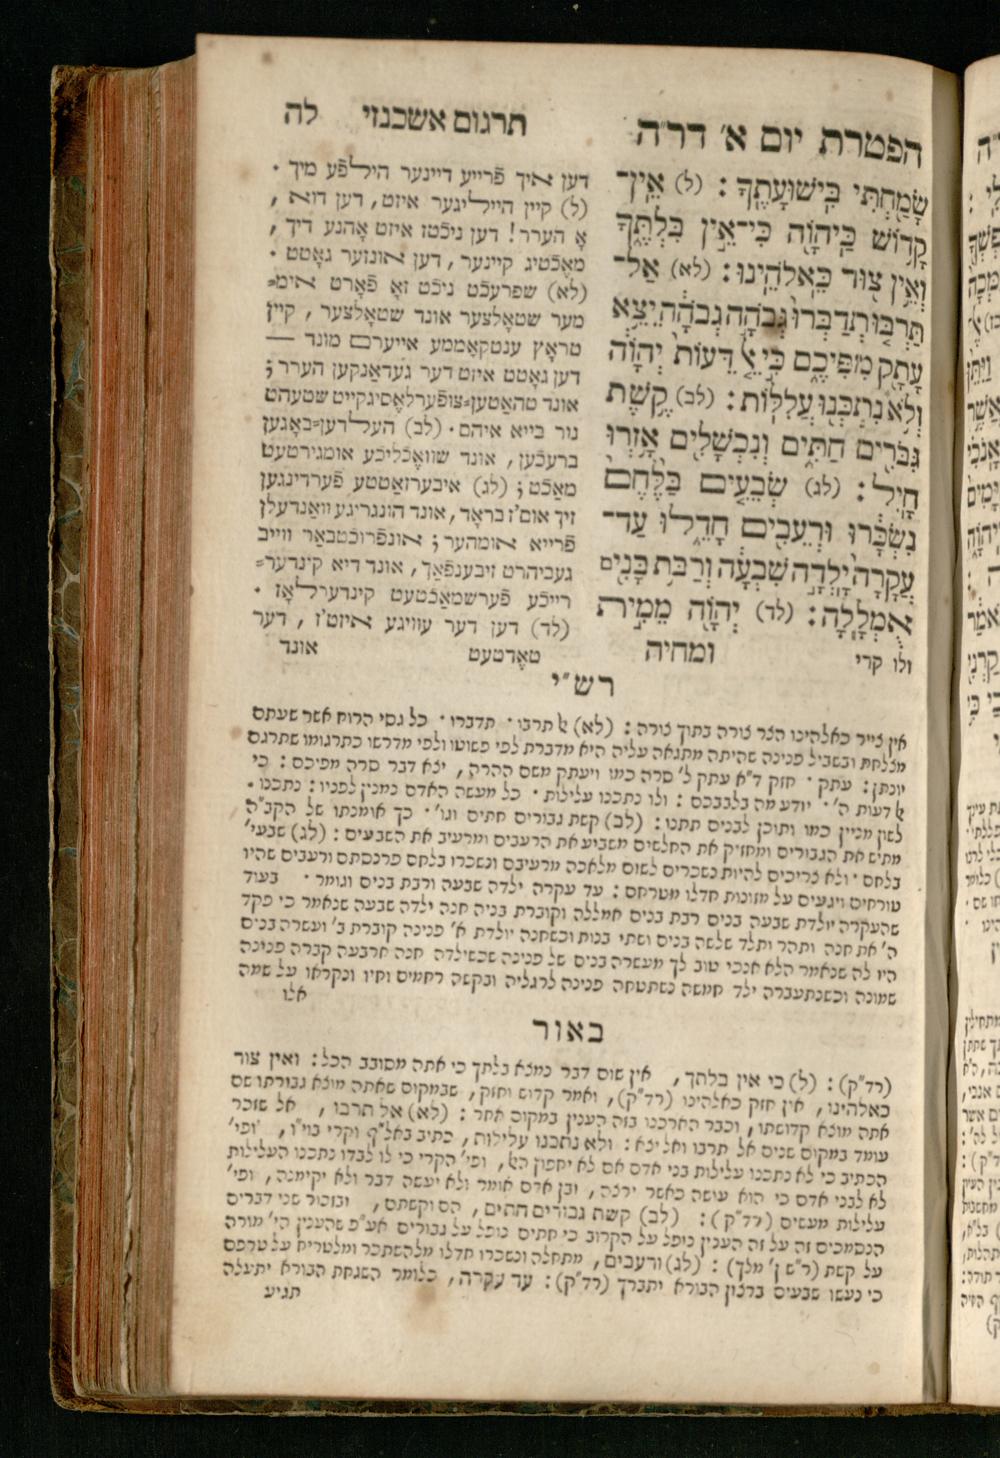 הפטרת יום א׳ דר״ה
שָׂמַחְתִּי בִּישׁוּעָתֶךָ : (ל) אֵין־
קָדוֹשׁ כַּיהוָֹה כִּי־אֵין בִּלְתֶּךָ
וְאֵין צוּר כֵּאלֹהֵינוּ : (לא) אַל־
תַּרְבּוּ תְדַבְּרוּ גְּבֹהָה גְבֹהָה יֵצֵא
עָתָק מִפִּיכֶם כִּי אֵל דֵּעוֹת יְהוָֹה
וְלֹא נִתְכְּנוּ עֲלִלוֹת : (לב) קֶשֶׁת
גִּבֹּרִים חַתִּים וְנִכְשָׁלִים אָזְרוּ
חָיִל : (לג) שְׂבֵעִים בַּלֶּחֶם
נִשְׂכָּרוּ וּרְעֵבִים חָדֵלּוּ עַד־
עֲקָרָה יָלְדָה שִׁבְעָה וְרַבַּת בָּנִים
אֻמְלָלָה : (לד) יְהוָֹה מֵמִית
ולו קרי ומחיה
תרגום אשכנזי לה
דען איך פֿרייע דיינער הילפֿע מיך .
(ל) קיין הייליגער איזט, דען דוא ,
אָ הערר! דען ניכֿטז איזט אָהנע דיך ,
מאֶכֿטיג קיינער, דען אונזער גאָטט .
(לא) שפרעכֿט ניכֿט זאָ פֿאָרט אימ=
מער שטאָלצער אונד שטאָלצער, קיין
טראָץ ענטקאָממע אייערם מונד —
דען גאָטט איזט דער געדאַנקען הערר;
אונד טהאַטען=צופֿערלאֶסיגקייט שטעהט
נור בייא איהם. (לב) העלדען=באָגען
ברעכֿען, אונד שוואֶכֿליכֿע אומגירטעט
מאַכֿט; (לג) איבערזאַטטע פֿערדינגען
זיך אום'ז בראָד, אונד הונגריגע וואַנדעלן
פֿרייא אומהער; אונפֿרוכֿטבאַר ווייב
געביהרט זיבענפֿאַך, אונד דיא קינדער=
רייכֿע פֿערשמאַכֿטעט קינדערלאָז .
(לד) דען דער עוויגע איזט'ז, דער
טאֶדטעט אונד
רש״י
אין צייר כאלהינו הצר צורה בתוך צורה : (לא) אל תרבו . תדברו . כל גסי הרוח אשר שעתם
מצלחת ובשביל פנינה שהיתה מתגאה עליה היא מדברת לפי פשוטו ולפי מדרשו כתרגומו שתרגם
יונתן : עתק . חזק ד״א עתק ל׳ סרה כמו ויעתק משם ההרה, יצא דבר סרה מפיכם : כי
אל דעות ה׳ . יודע מה בלבבכם : ולו נתכנו עלילות . כל מעשה האדם נמנין לפניו : נתכנו .
לשון מניין כמו ותוכן לבנים תתנו : (לב) קשת גבורים חתים וגו׳ . כך אומנתו של הקב״ה
מתיש את הגבורים ומחזיק את החלשים משביע את הרעבים ומרעיב את השבעים : (לג) שבעי׳
בלחם . ולא צריכים להיות נשכרים לשום מלאכה מרעיבם ונשכרו בלחם פרנסתם ורעבים שהיו
טורחים ויגעים על מזונות חדלו מטרחם : עד עקרה ילדה שבעה ורבת בנים וגומר . בעוד
שהעקרה יולדת שבעה בנים רבת בנים אמללה וקוברת בניה חנה ילדה שבעה שנאמר כי פקד
ה׳ את חנה ותהר ותלד שלשה בנים ושתי בנות וכשחנה יולדת א׳ פנינה קוברת ב׳ ועשרה בנים
היו לה שנאמר הלא אנכי טוב לך מעשרה בנים של פנינה שכשילדה חנה ארבעה קברה פנינה
שמונה וכשנתעברה ילד חמשה נשתטחה פנינה לרגליה ובקשה רחמים וחיו ונקראו על שמה
אלו
באור
(רד״ק) : (ל) כי אין בלתך, אין שום דבר נמצא בלתך כי אתה מסובב הכל : ואין צור
כאלהינו, אין חזק כאלהינו (רד״ק), ואמר קדוש וחזק, שבמקום שאתה מוצא גבורתו שם
אתה מוצא קדושתו, וכבר הארכנו בזה הענין במקום אחר : (לא) אל תרבו, אל שזכר
עומד במקום שנים אל תרבו ואל יצא : ולא נתכנו עלילות, כתיב באל״ף וקרי בוי״ו, ופי׳
הכתיב כי לא נתכנו עלילות בני אדם אם לא יחפוץ האל, ופי׳ הקרי כי לו לבדו נתכנו העלילות
לא לבני אדם כי הוא עושה כאשר ירצה, ובן אדם אומר ולא יעשה דבר ולא יקימנה, ופי׳
עלילות מעשים (רד״ק) : (לב) קשת גבורים חתים, הם וקשתם, ובזכור שני דברים
הנסמכים זה על זה הענין נופל על הקרוב כי חתים נופל על גבורים אע״פ שהענין הי׳ מורה
על קשת (ר״ש ן׳ מלך) : (לג) ורעבים, מתחלה ונשכרו חדלו מלהשתכר ומלטריח על טרפם
כי נעשו שבעים ברצון הבורא יתברך (רד״ק) : עד עקרה, כלומר השגחת הבורא יתעלה
תגיע